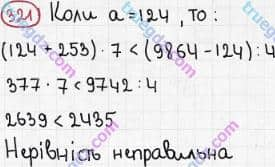 321 Коли a = 124, то:
(124 + 253) · 7 < (9864 - 124) : 4
377 · 7 < 9742 : 4
2639 < 2435
Нерівність неправильна